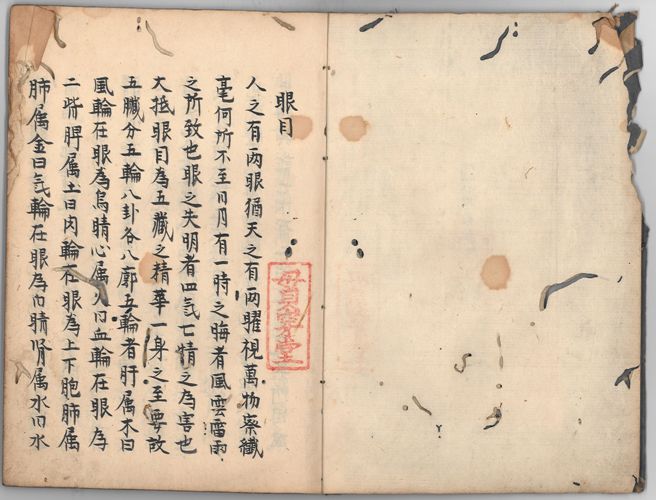 眼目
人之有兩眼猶天之有兩曜視萬物察纖
毫何所不至日月有一時之晦者風雲雷雨
之所致也眼之失明者四氣七情之為害也
大抵眼目為五藏之精華一身之至要故
五臟分五輪八卦名八廓五輪者肝属木曰
風輪在眼為烏睛心属火曰血輪在眼為
二眥脾属土曰肉輪在眼為上下胞肺属
肺属金曰氣輪在眼為白睛肾属水曰水